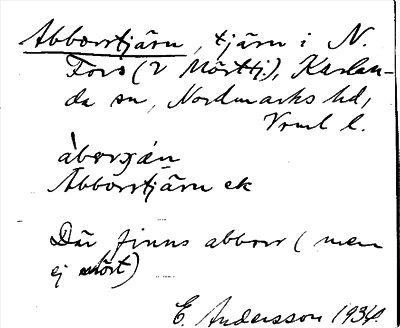 Abborrtjärn, tjärn i N.
Fors (2 Mörttj.), Karlan-
da sn, Nordmarks hd,
Vrml l.
àbərʒán
Abborrtjärn ek
Där finns abborr (men
ej mört)
E. Andersson 1934.